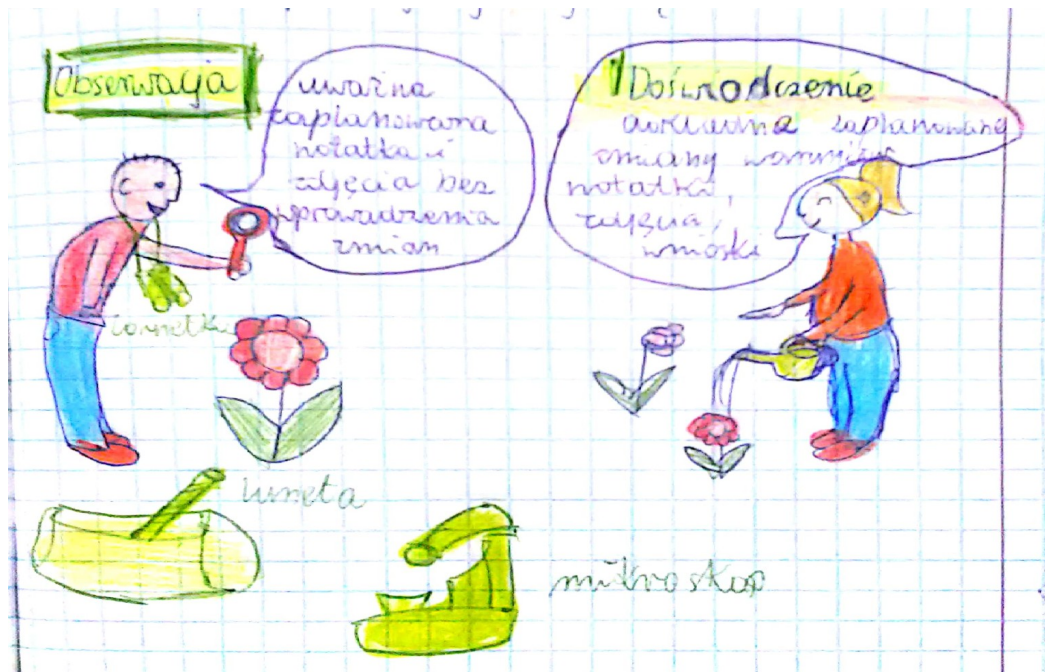 Obserwacja
uważna
zaplanowana
notatka i
zdjęcia bez
wprowadzenia
zmian
Doświadczenie
dokładne zaplanowane
zmiany warunków
notatki,
zdjęcia,
wnioski
lornetka
luneta
mikroskop